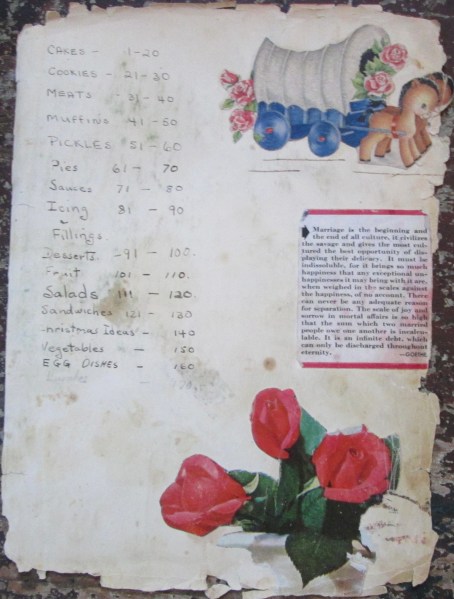 CAKES - 1-20
COOKIES - 21-30
MEATS - 31-40
Muffins 41-50
PICKLES 51-60
Pies 61-70
Sauces 71-80
Icing 81-90
Fillings
Desserts -91-100.
Fruit 101-110.
Salads 111 120.
Sandwiches 121-130
Christmas Ideas - 140
Vegetables 150
EGG DISHES - 160
Marriage is the beginning and
the end of all culture, it civilizes
the savage and gives the most cul-
tured the best opportunity of dis-
playing their delicacy. It must be
indissoluble, for it brings so much
happiness that any exceptional un-
happinesses it may bring with it are,
when weighed in the scales against
the happiness, of no account. There
can never be any adequate reason
for separation. The scale of joy and
sorrow in mortal affairs is so high
that the sum which two married
people owe one another is incalcu-
lable. It is an infinite debt, which
can only be discharged throughout
eternity. —GOETHE